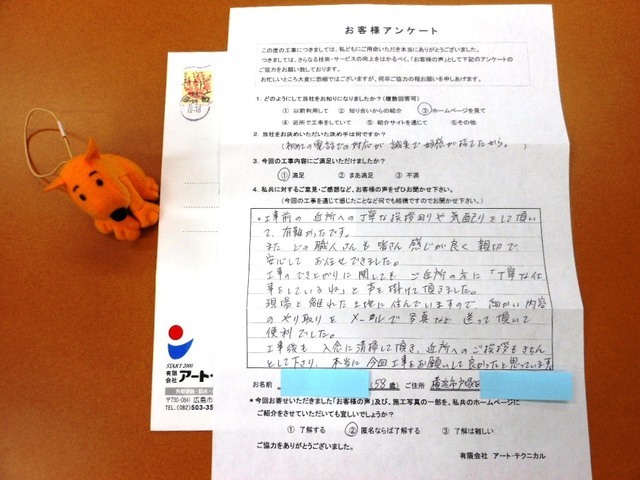 お客様アンケート
この度の工事につきましては、私どもにご用命いただき本当にありがとうございました。
つきましては、さらなる技術・サービスの向上をはかるべく、「お客様の声」として下記のアンケートの
ご協力をお願い致しております。
お忙しいところ大変に恐縮ではございますが、何卒ご協力の程お願いを申しあげます。
1. どのようにして当社をお知りになりましたか?(複数回答可)
① 以前利用して ② 知り合いからの紹介 ③ ホームページを見て
④ 近所で工事をしていて ⑤ 紹介サイトを通じて ⑥その他
2. 当社をお決めいただいた決め手は何ですか?
(初めての電話での対応が誠実で好感が持てたから。)
3. 今回の工事内容にご満足いただけましたか?
① 満足 ② まあ満足 ③ 不満
4. 私共に対するご意見・ご感想など、お客様の声をぜひお聞かせ下さい。
(今回の工事を通じて感じたことなど何でも結構ですのでお聞かせ下さい。)
・工事前の近所への丁寧な挨拶回りや気配りをして頂い
て、有難かったです。
また どの職人さんも皆さん感じが良く親切で、
安心して お任せできました。
工事のできあがりに関しても ご近所の方に「丁寧な仕
事をしているね」と声を掛けて頂きました。
現場と離れた土地に住んでいますので、細かい内容
のやり取りをメールで写真など送って頂いて
便利でした。
工事後も、入念に清掃して頂き、近所へのご挨拶もきちん
として下さり、本当に今回工事をお願いして良かったと思っています。
お名前 (58歳) ご住所 横浜市戸塚区
*今回お寄せいただきました「お客様の声」及び、施工写真の一部を、私共のホームページに
ご紹介をさせていただいても宜しいでしょうか?
① 了解する ② 匿名ならば了解する ③ 了解は難しい
ご協力をありがとうございました。
有限会社 アート・テクニカル
82
START 2000
有限
会社 アート・
〒730-0841 広島市
TEL.(082)503-35